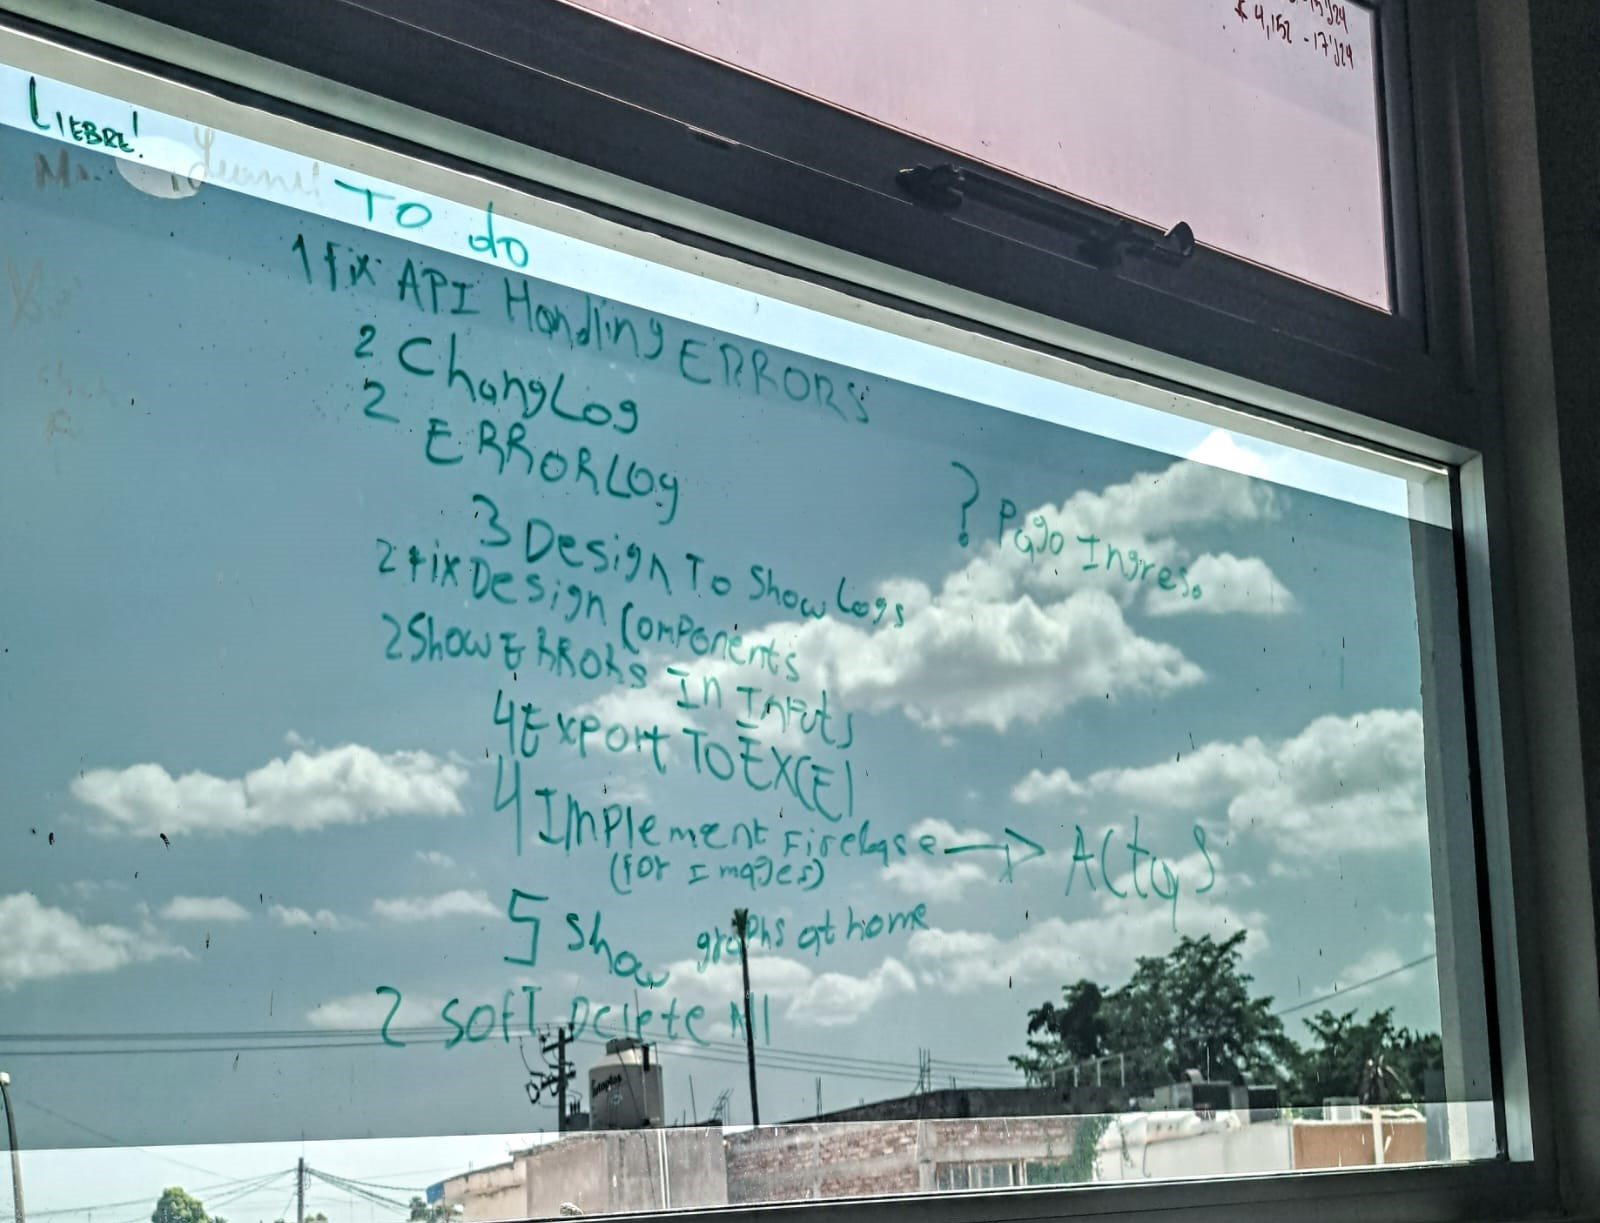 $ 4,152 - 17'J24
LIEBRE!
TO do
1 fix API Handling ERRORS
2 ChangLog
2 ERRORLOg
3 Design To Show Logs
? Pago Ingreso
2 fix Design Components
2 Show ERRORS In Inputs
4 Export TO EXCEl
4 Implement Firebase → Actas
(for Images)
5 Show graphs at home
2 Soft Delete All